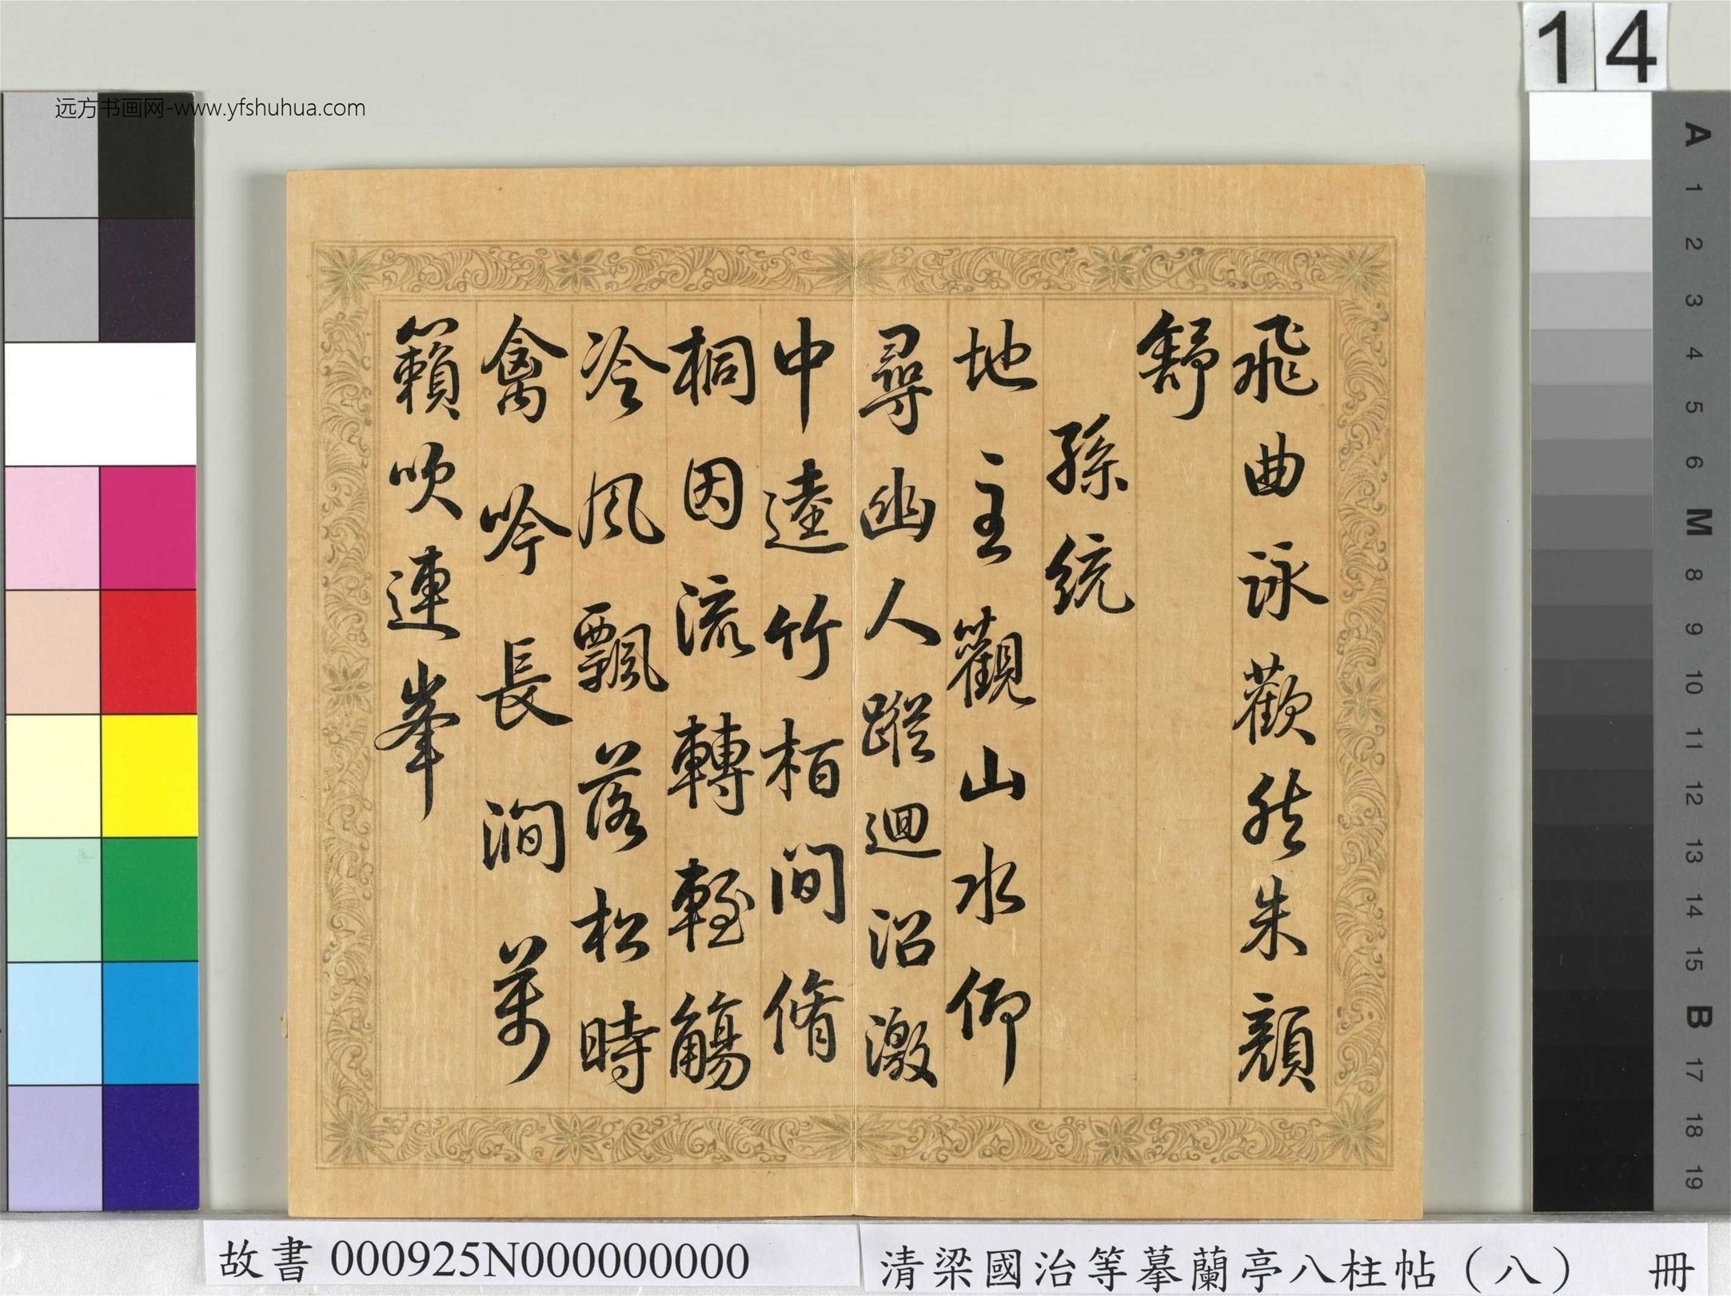 14
远方书画网-www.yfshuhua.com
飛曲詠歡然朱顔
舒
孫統
地主觀山水仰
尋幽人蹤迴沼激
中逵竹栢間脩
桐因流轉輕觴
冷風飄落松時
禽吟長澗萬
籟吹連峯
A
1
2
3
4
5
6
M
8
9
10
11
12
13
14
15
B
17
18
19
故書 000925N000000000
清梁國治等摹蘭亭八柱帖（八） 冊